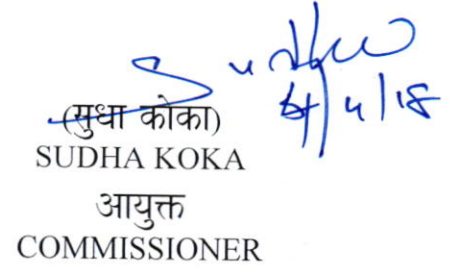 Sudha
4/4/18
(सुधा कोका)
SUDHA KOKA
आयुक्त
COMMISSIONER